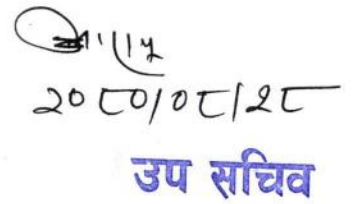 २०८०/०८/२८
उप सचिव